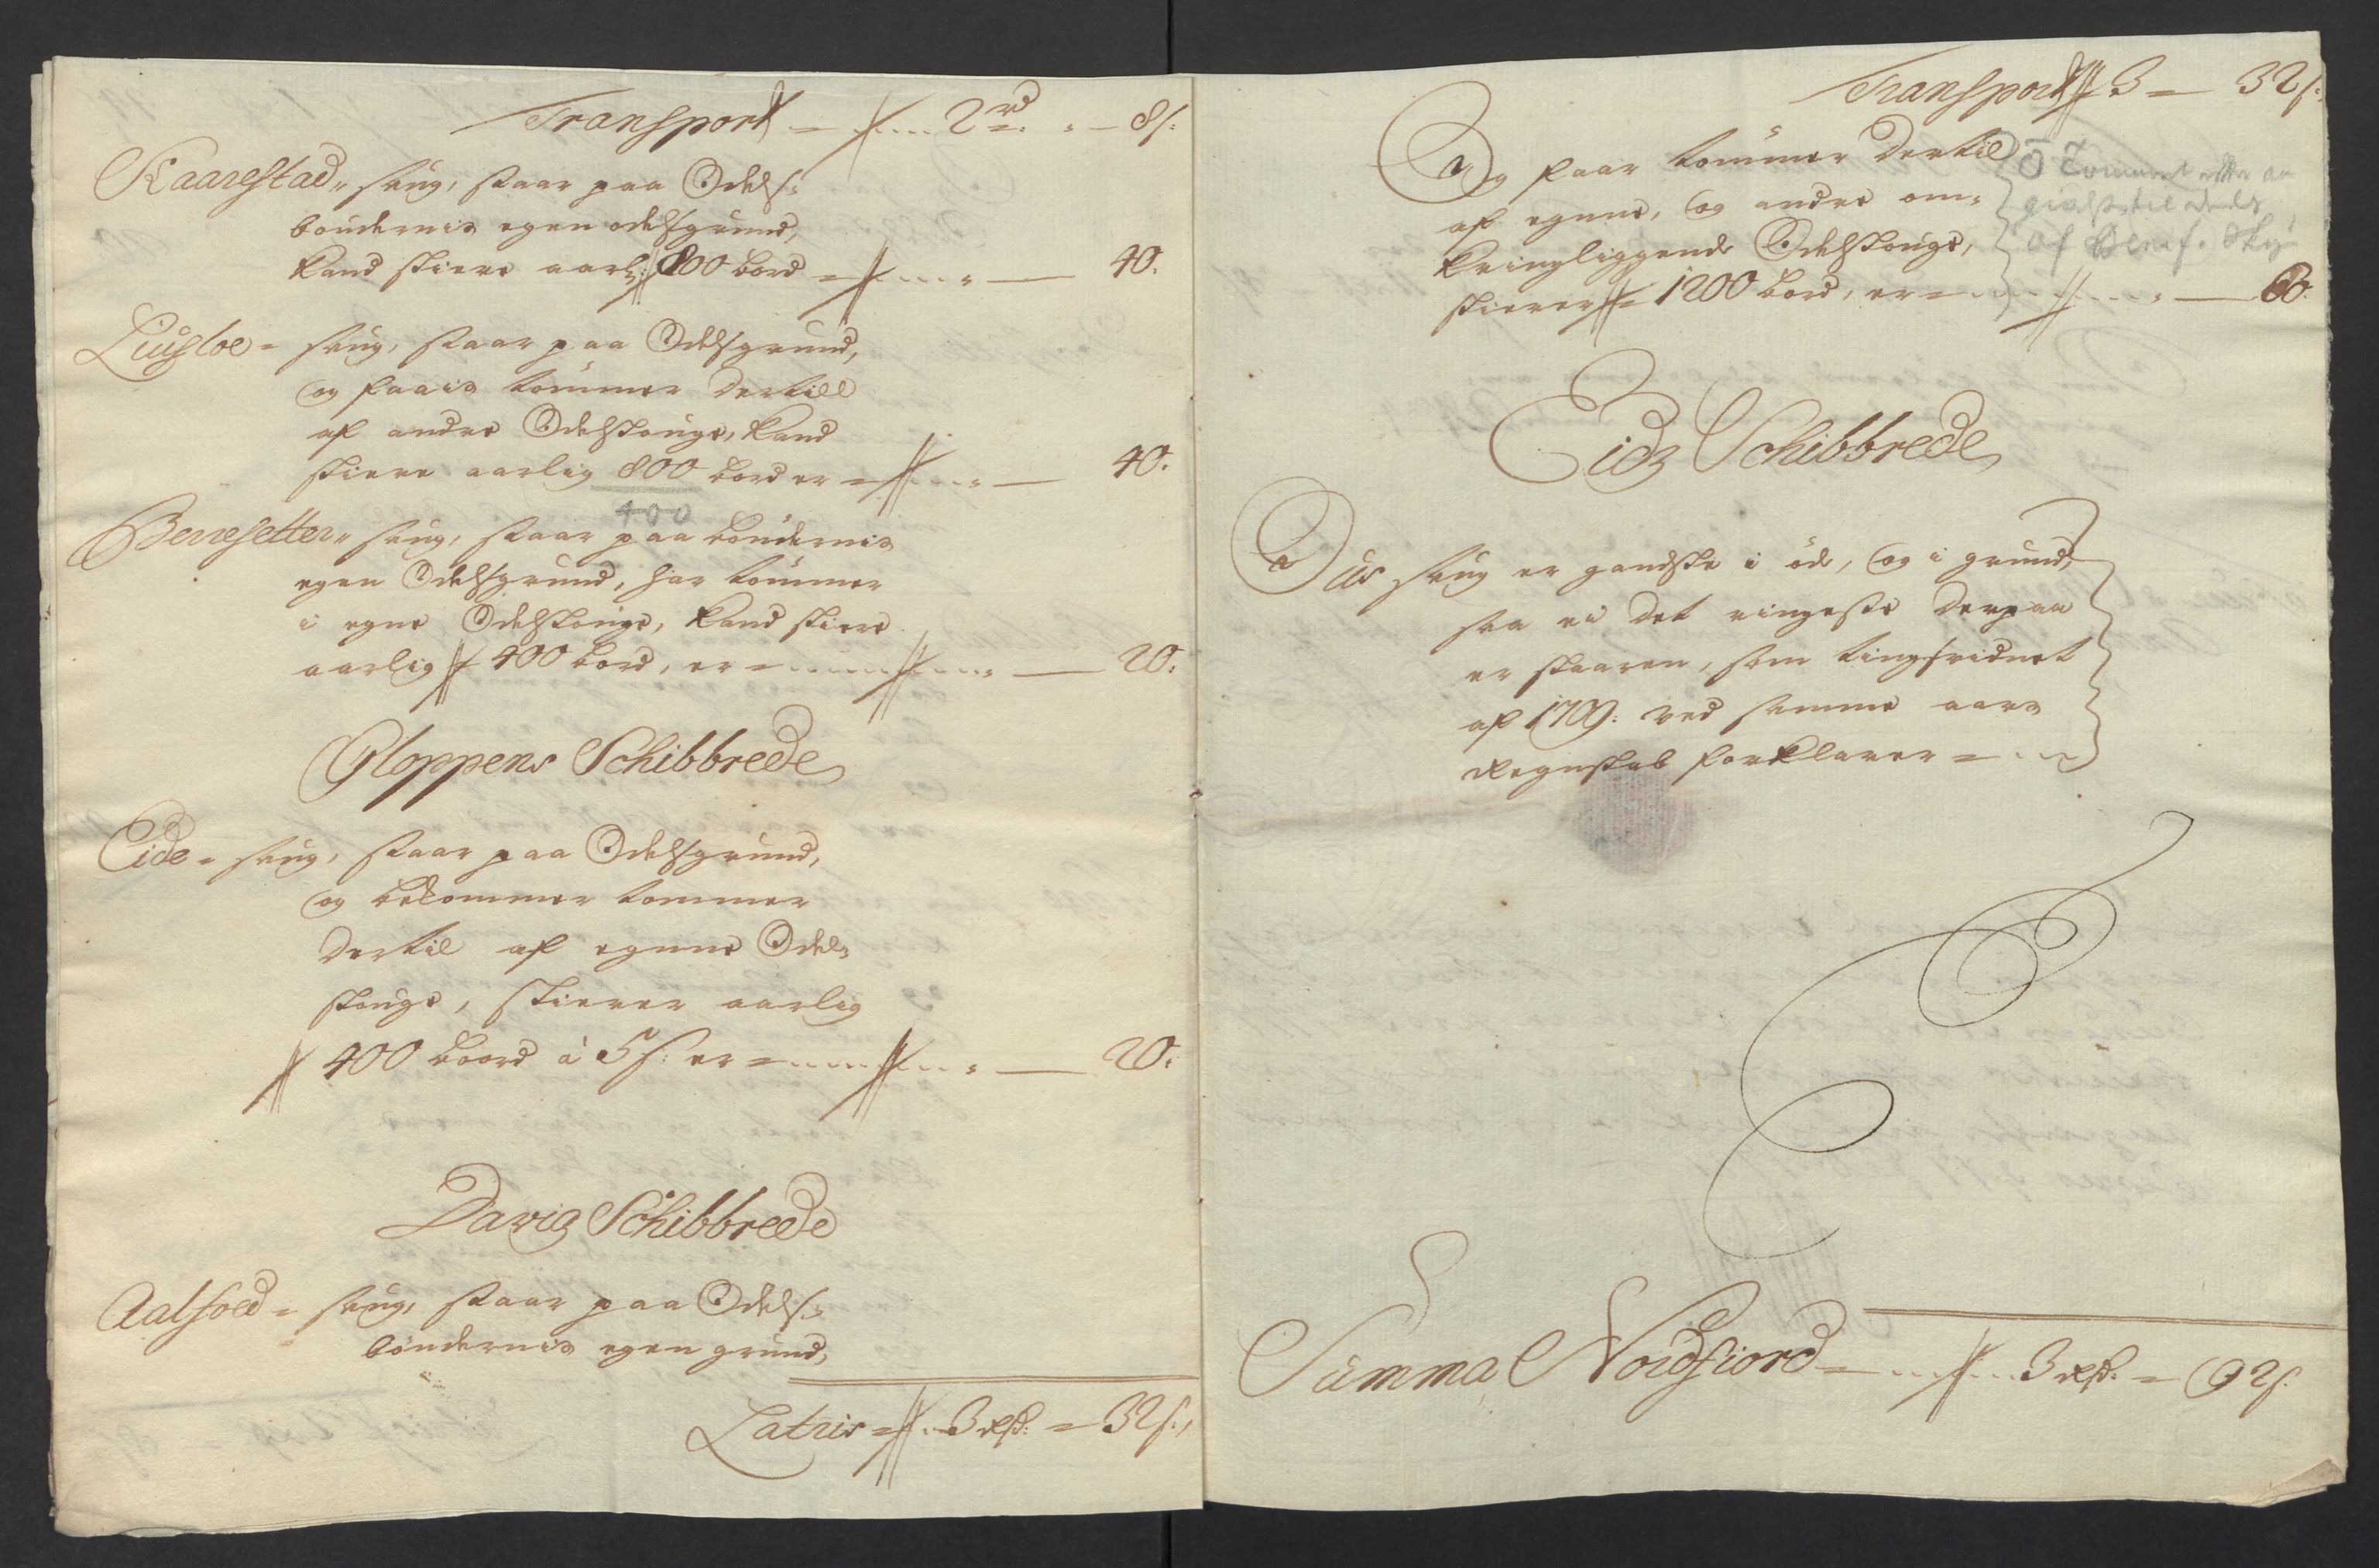 Transport = 2 rd = 8 s:
Kaarestad = saug, staar paa Odels:
böndernis egen odelsgrund,
kand skiere aarl: 800 bord = 40.
Liusloe = saug, staar paa Odelsgrund,
og faais tömmer dertill
af andre Odelskouge, kand
skiere aarlig 800 bord er = 40.
400
Berresetter = saug, staar paa böndernis
egen Odelsgrund, har tömmer
i egne Odelskouge, kand skiere
aarlig 400 bord, er = 20:
Gloppens Schibbrede
Eide = saug, staar paa Odelsgrund,
og bekommer tommer
dertil af egnne Odel=
skouge, skierer aarlig
400 boord à 5 s: er = 20:
Davigs Schibbrede
Aalfoed = saug, staar paa Odels:
böndernis egen grund,
Latris = 3 rd: = 32 s:
Transport 3 = 32 s:
Og faar tömmer dertil
af egnne, og andre om=
kringliggende Odelskouge,
skierer 1200 bord, er = 60.
Tömmeret
af
Eids Schibbrede
Dus saug er gandske i öde, og i grund,
saa ei det ringeste derpaa
er skaaren, som tingsvidnet
af 1709: ved samme aars
Regnskab forklarer =
Summa Nordfiord = 3 rd: = 92 s: